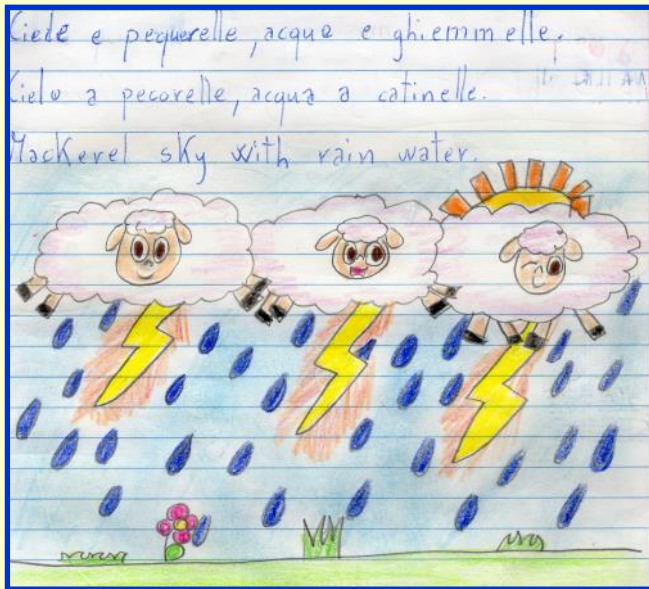 Ciede e pequerelle, acqua e ghiemmelle.
Cielo a pecorelle, acqua a catinelle.
Mackerel sky with rain water.